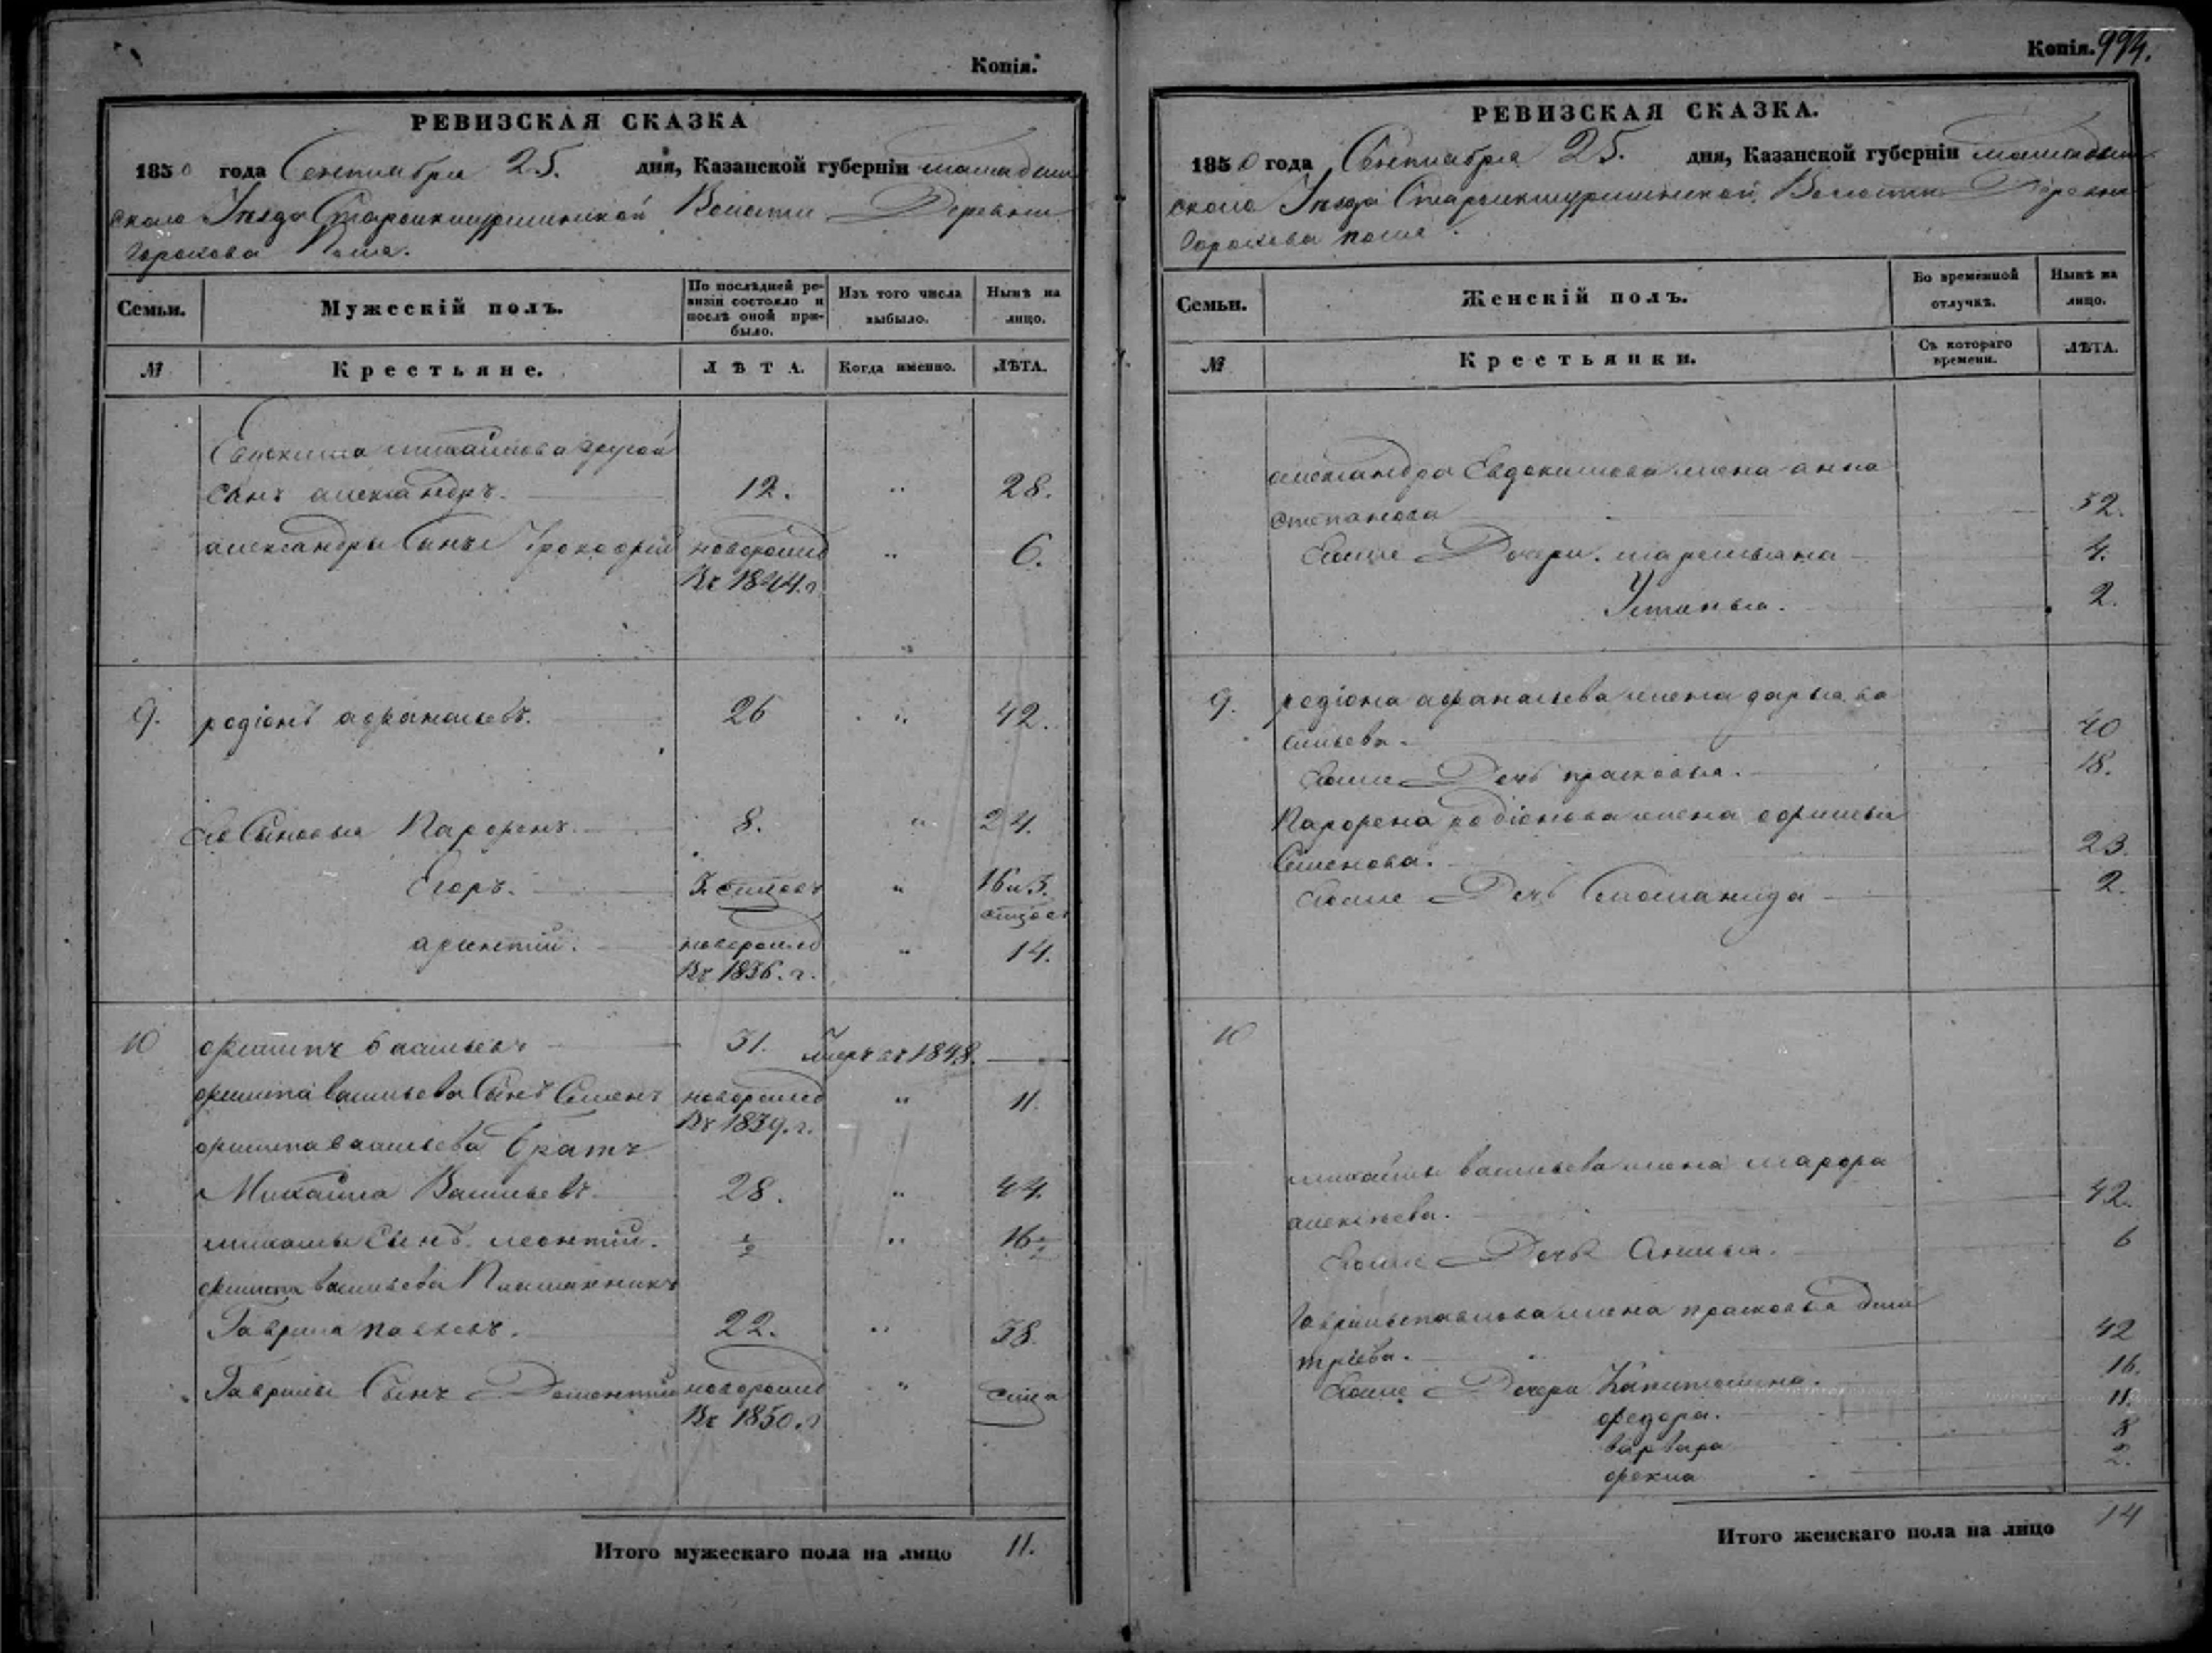 Копія.
РЕВИЗСКАЯ СКАЗКА
1850 года Сентября 25. дня, Казанской губерніи мамадыш
скаго Уезда Староикшурминской Волости Деревни
Горохова Поля.
Семьи. Мужескій полъ. По послѣдней ре-
визіи состояло и
послѣ оной при-
было. Изъ того числа
выбыло. Нынѣ на
лицо.
№ Крестьяне. ЛѢТА. Когда именно. ЛѢТА.
Евдокима михайлова другой
сынъ александръ. 12. " 28.
александры Сынъ Прокофій новорожд " 6.
Въ 1844.г.
9. родіонъ афанасьевъ. 26 " 42.
его Сыновья Парфенъ 8. " 24.
Егоръ. " 16 и 3.
арлентий. новорожд " 14.
Въ 1836.г.
10 филипъ васильевъ 31. Умеръ въ 1848.
филипа васильева Сынъ Семенъ новорожд " 11.
Въ 1839.г.
филипа васильева братъ
Михайла Васильевъ 28. " 44.
михайлы Сынъ леонтий. ½ " 16½
филипа васильева Племянникъ
Гаврила павловъ. 22. " 38.
Гаврилы Сынъ Дементий новорожд "
Въ 1850.г
Итого мужескаго пола на лицо 11.
Копія. 994.
РЕВИЗСКАЯ СКАЗКА.
1850 года Сентября 25. дня, Казанской губерніи мамадыш
скаго Уезда Староикшурминской Волости Деревни
Горохова поля.
Семьи. Женскій полъ. Во временной
отлучкѣ. Нынѣ на
лицо.
№ Крестьянки. Съ котораго
времени. ЛѢТА.
александра Евдокимова жена анна
степанова 32.
Ихъ Дочери. маремьяна 4.
Устинья. 2.
9. родіона афанасьева жена дарья ва
сильева. 40
Ихъ Дочь прасковья. 18.
Парфена родіонова жена офимья
Семенова. 23.
Ихъ Дочь Соломанида 2.
10
михайлы васильева жена марфа
алексеева. 42.
Ихъ Дочь Анисья. 6
Гаврилы павлова жена прасковья дми
тріева. 42
Ихъ Дочери Капитолина. 16.
федора. 11.
варвара 8
фекла 2.
Итого женскаго пола на лицо 14